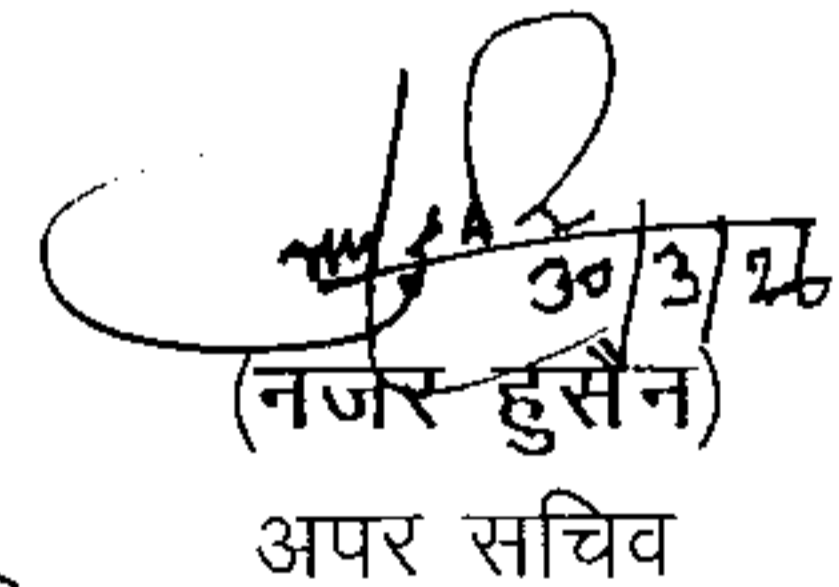 30/3/26
(नजर हुसैन)
अपर सचिव